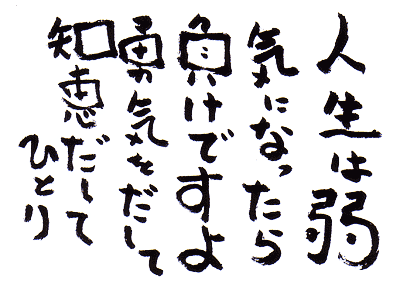 人生は弱
気になったら
負けですよ
勇気をだして
知恵だして
ひとり